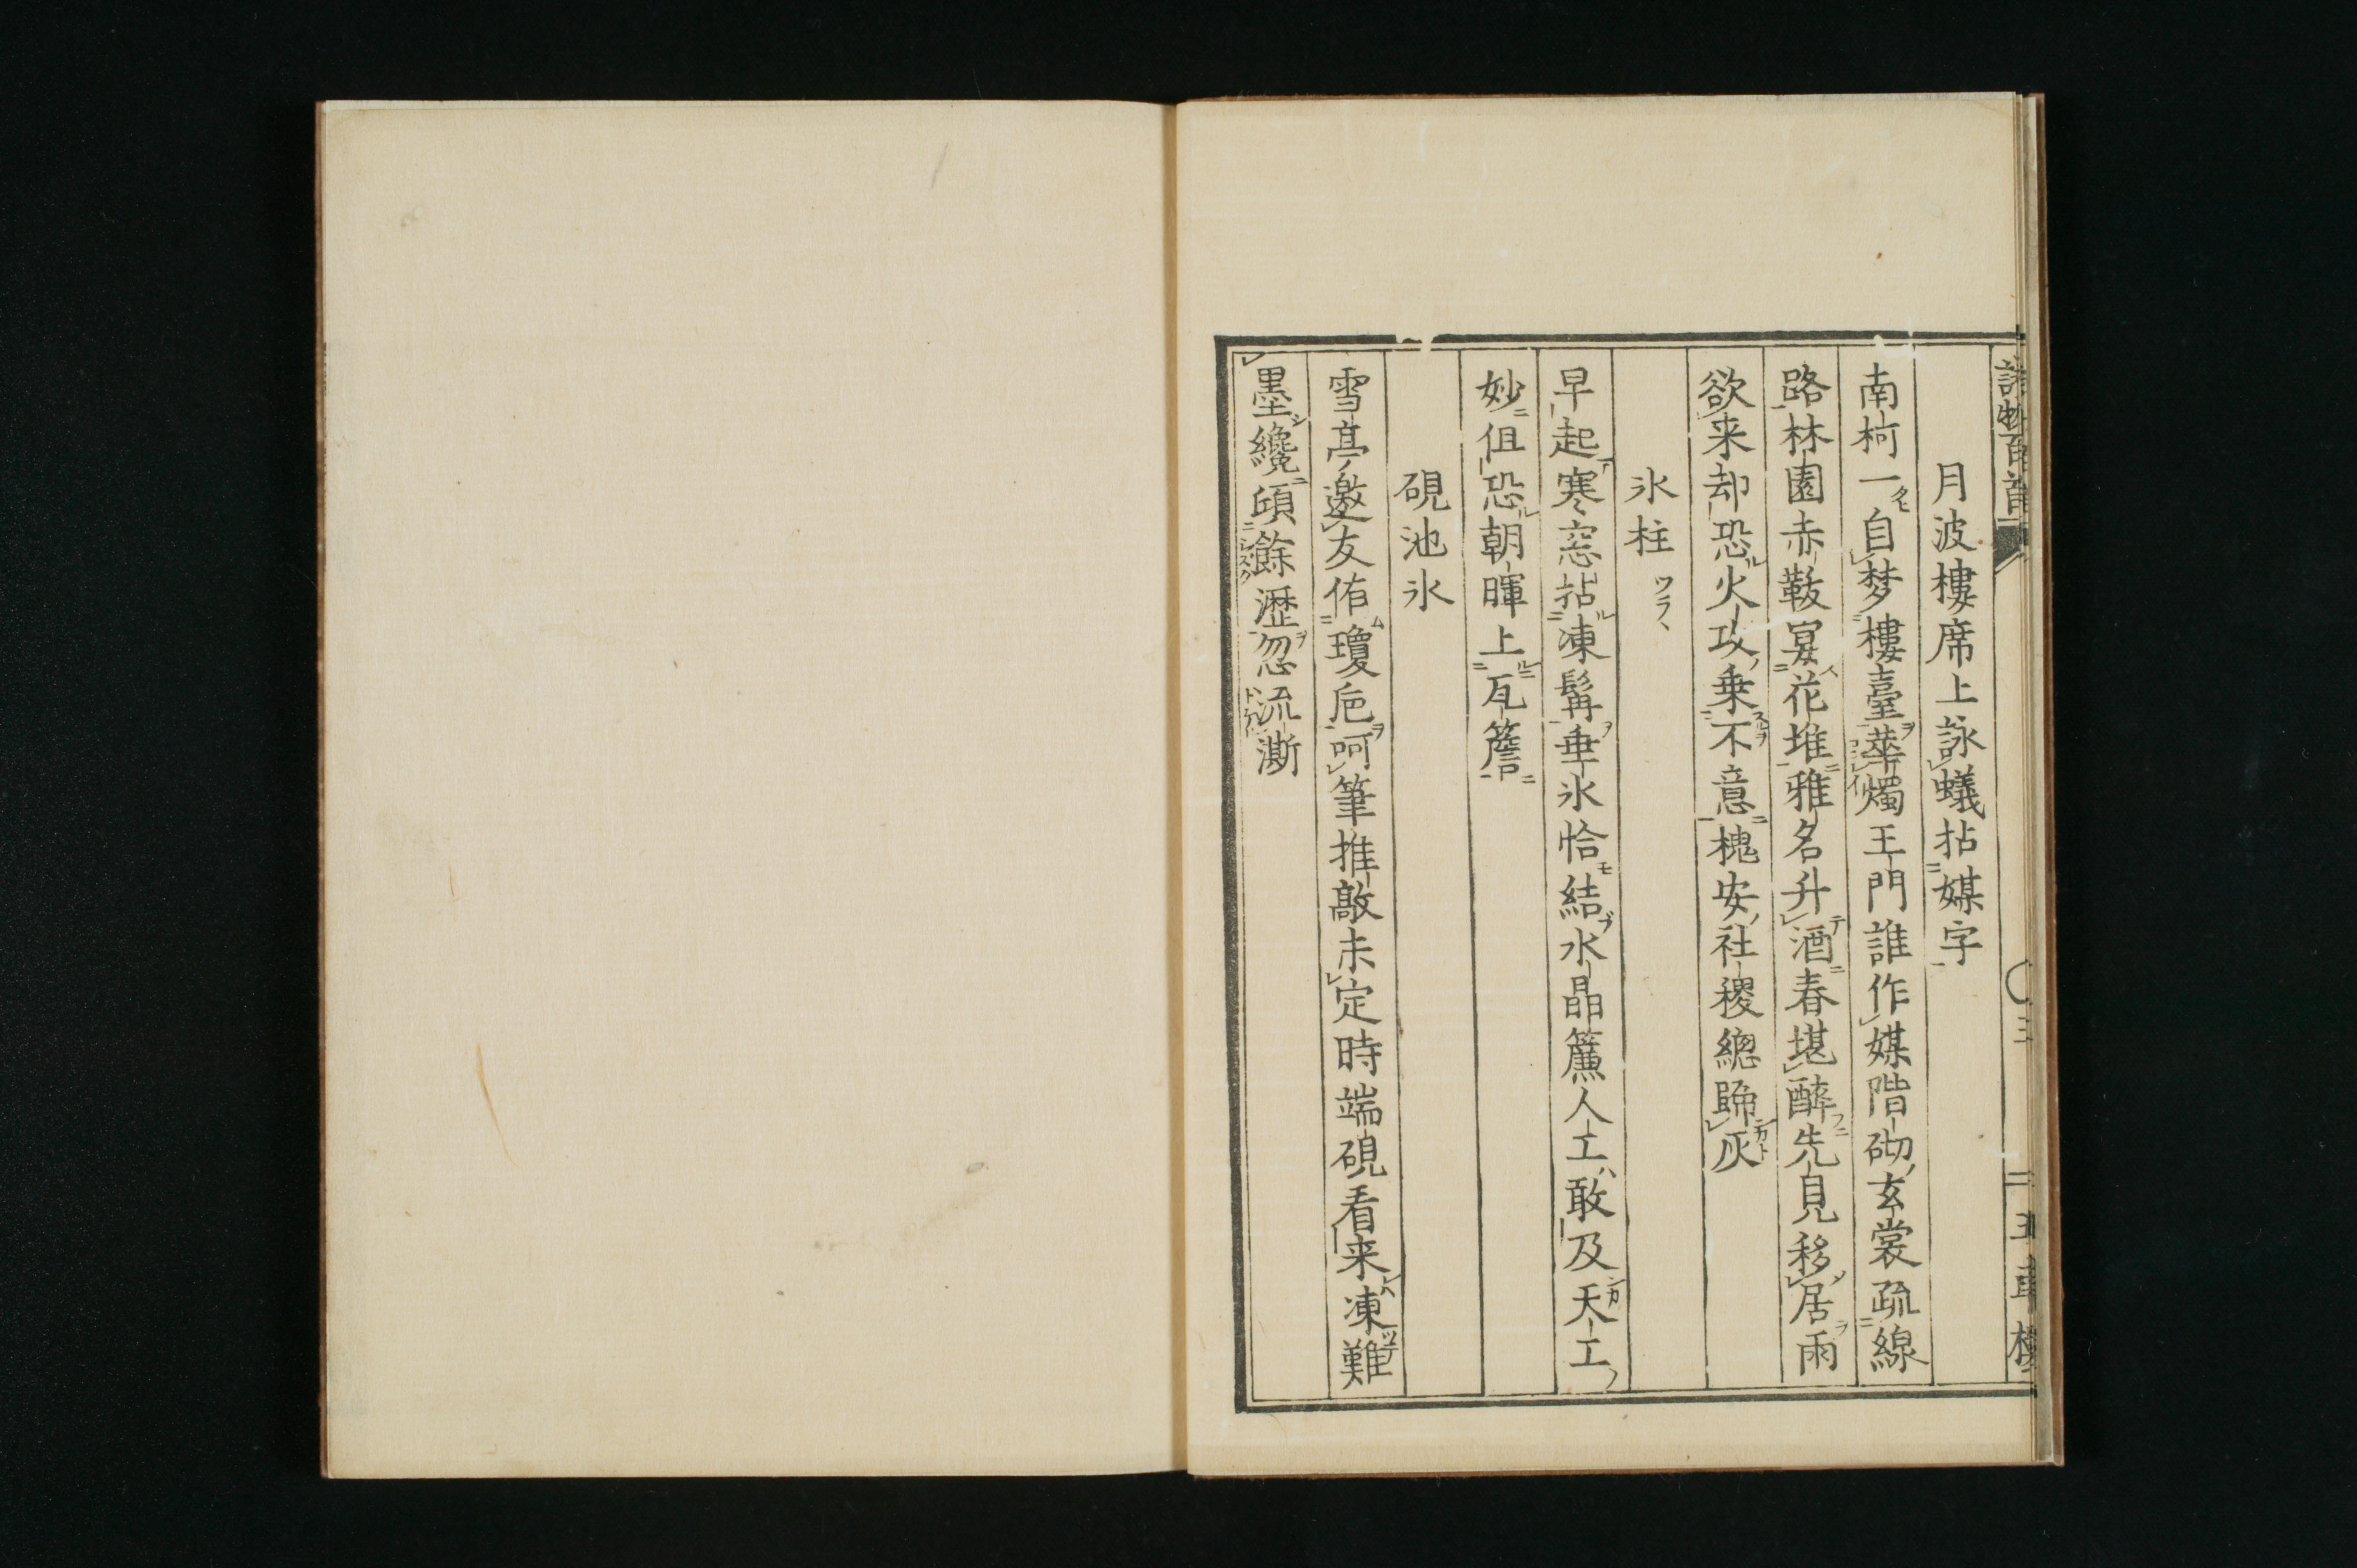 詠物百首
月波樓席上詠蟻拈媒字
南柯一自梦樓臺華燭王門誰作媒階砌玄裳疏線
路林園赤𩎟宴花堆雅名升酒春堪醉先見移居雨
欲来却恐火攻乗不意槐安社稷總歸灰
氷柱 ツラヽ
早起寒窓拈凍髯垂氷恰結水晶簾人工敢及天工
妙但恐朝暉上瓦簷
硯池氷
雪亭邀友侑瓊巵呵筆推敲未定時端硯看来凍難
墨纔傾餘瀝忽流澌